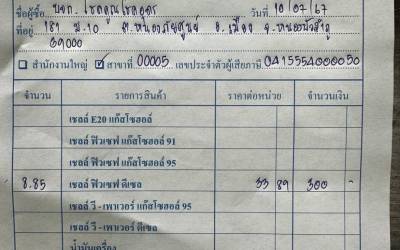 ชื่อผู้ซื้อ บจก. โชคคูณโชคอุดร วันที่ 10/07/67
ที่อยู่ 181 ม.10 ต.หนองภัยศูนย์ อ.เมือง จ.หนองบัวลำภู
39000
สำนักงานใหญ่ ✓ สาขาที่ 00005 เลขประจำตัวผู้เสียภาษี 0415554000050
จำนวน รายการสินค้า ราคาต่อหน่วย จำนวนเงิน
เชลล์ E20 แก๊สโซฮอล์
เชลล์ ฟิวเซฟ แก๊สโซฮอล์ 91
เชลล์ ฟิวเซฟ แก๊สโซฮอล์ 95
8.85 เชลล์ ฟิวเซฟ ดีเซล 33 89 300 -
เชลล์ วี - เพาเวอร์ แก๊สโซฮอล์ 95
เชลล์ วี - เพาเวอร์ ดีเซล
น้ำมันเครื่อง